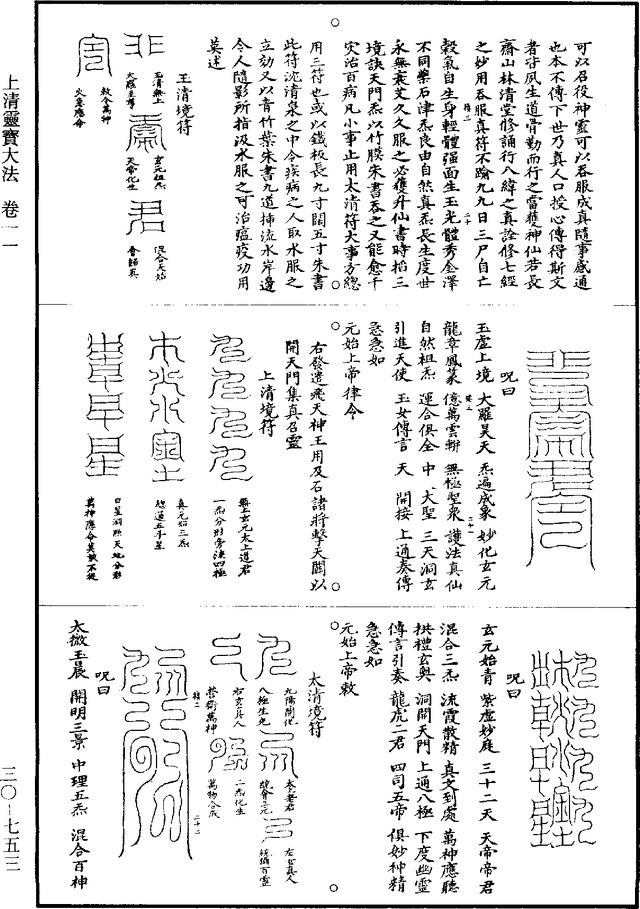 上清靈寶大法 卷一一
三〇—七五三
可以召役神靈可以吞服成真隨事感通
也本不傳下世乃真人口授心傳得斯文
者夙生道骨勤而行之當獲神仙若長
齋山林清堂修誦行八緯之真詮修七經
之妙用吞服真符不踰九九日三尸自亡
穀氣自生身輕體强面生玉光體秀金澤
不同藥石津炁良由自然真炁長生度世
永無衰艾久久服之必獲升仙書時掐三
境訣天門炁以竹膜朱書吞之又能愈千
災治百病凡小事止用太清符大事方總
用三符也或以鐵板長九寸闊五寸朱書
此符沈清泉之中令疾病之人取水服之
立効又以青竹葉朱書九道揷流水岸邊
令人隨影所指汲水服之可治瘟疫功用
莫述
玉清境符
玉清無上
玄元祖炁
混合太始
大羅至尊
天帝化生
敕令萬神
火急應命
呪曰
玉虛上境 大羅昊天 炁遍咸象 妙化玄元
龍章鳳篆 億萬雲輧 無極聖衆 護法真仙
自然祖炁 運合俱全 中大聖 三天洞玄
引進天使 玉女傳言 天開接 上通奏傳
急急如
元始上帝律令
右發遣飛天神王用及石諸將擊天關以
開天門集真召靈
上清境符
無上玄元太上道君
一炁分形旁浹四極
真元始三炁
總道五斗星
日星洞照天地分形
萬神應命莫敢不從
呪曰
玄元始青 紫虛妙庭 三十二天 天帝帝君
混合三炁 流霞散精 真文到處 萬神應聽
拱禮玄奥 洞開天門 上通八極 下度幽靈
傳言引奏 龍虎二君 四司五帝 俱妙神精
急急如
元始上帝敕
太清境符
九陽開化
太上老君
八極生光
總會三元
左玄真人
統攝百靈
右玄真人
二炁化生
營衛萬神
萬物合成
呪曰
太微玉晨 開明三景 中理五炁 混合百神